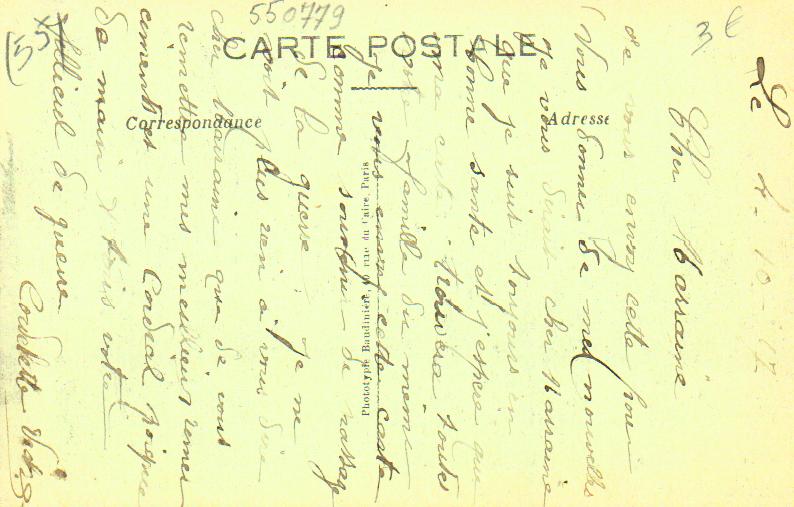 550779
3 €
(55)
CARTE POSTALE
Correspondance
Adresse
Phototypie Baudinière, rue du Caire, Paris
Le 4-10-17
Cher Marraine
de vous envoy cette pour
Vous donner de mes nouvelles
Je vous dirait cher Marraine
que je suis toujours en
bonne santé et j'espère que
ma carte trouvera toutes
votre famille du meme
je vous envoye cette carte
comme souvenir de passage
de la guerre je ne
voit plus rien a vous dire
cher Marraine que de vous
remettre mes meilleur remer
ciements et une Cordial poignée
de main votre
filleul de guerre